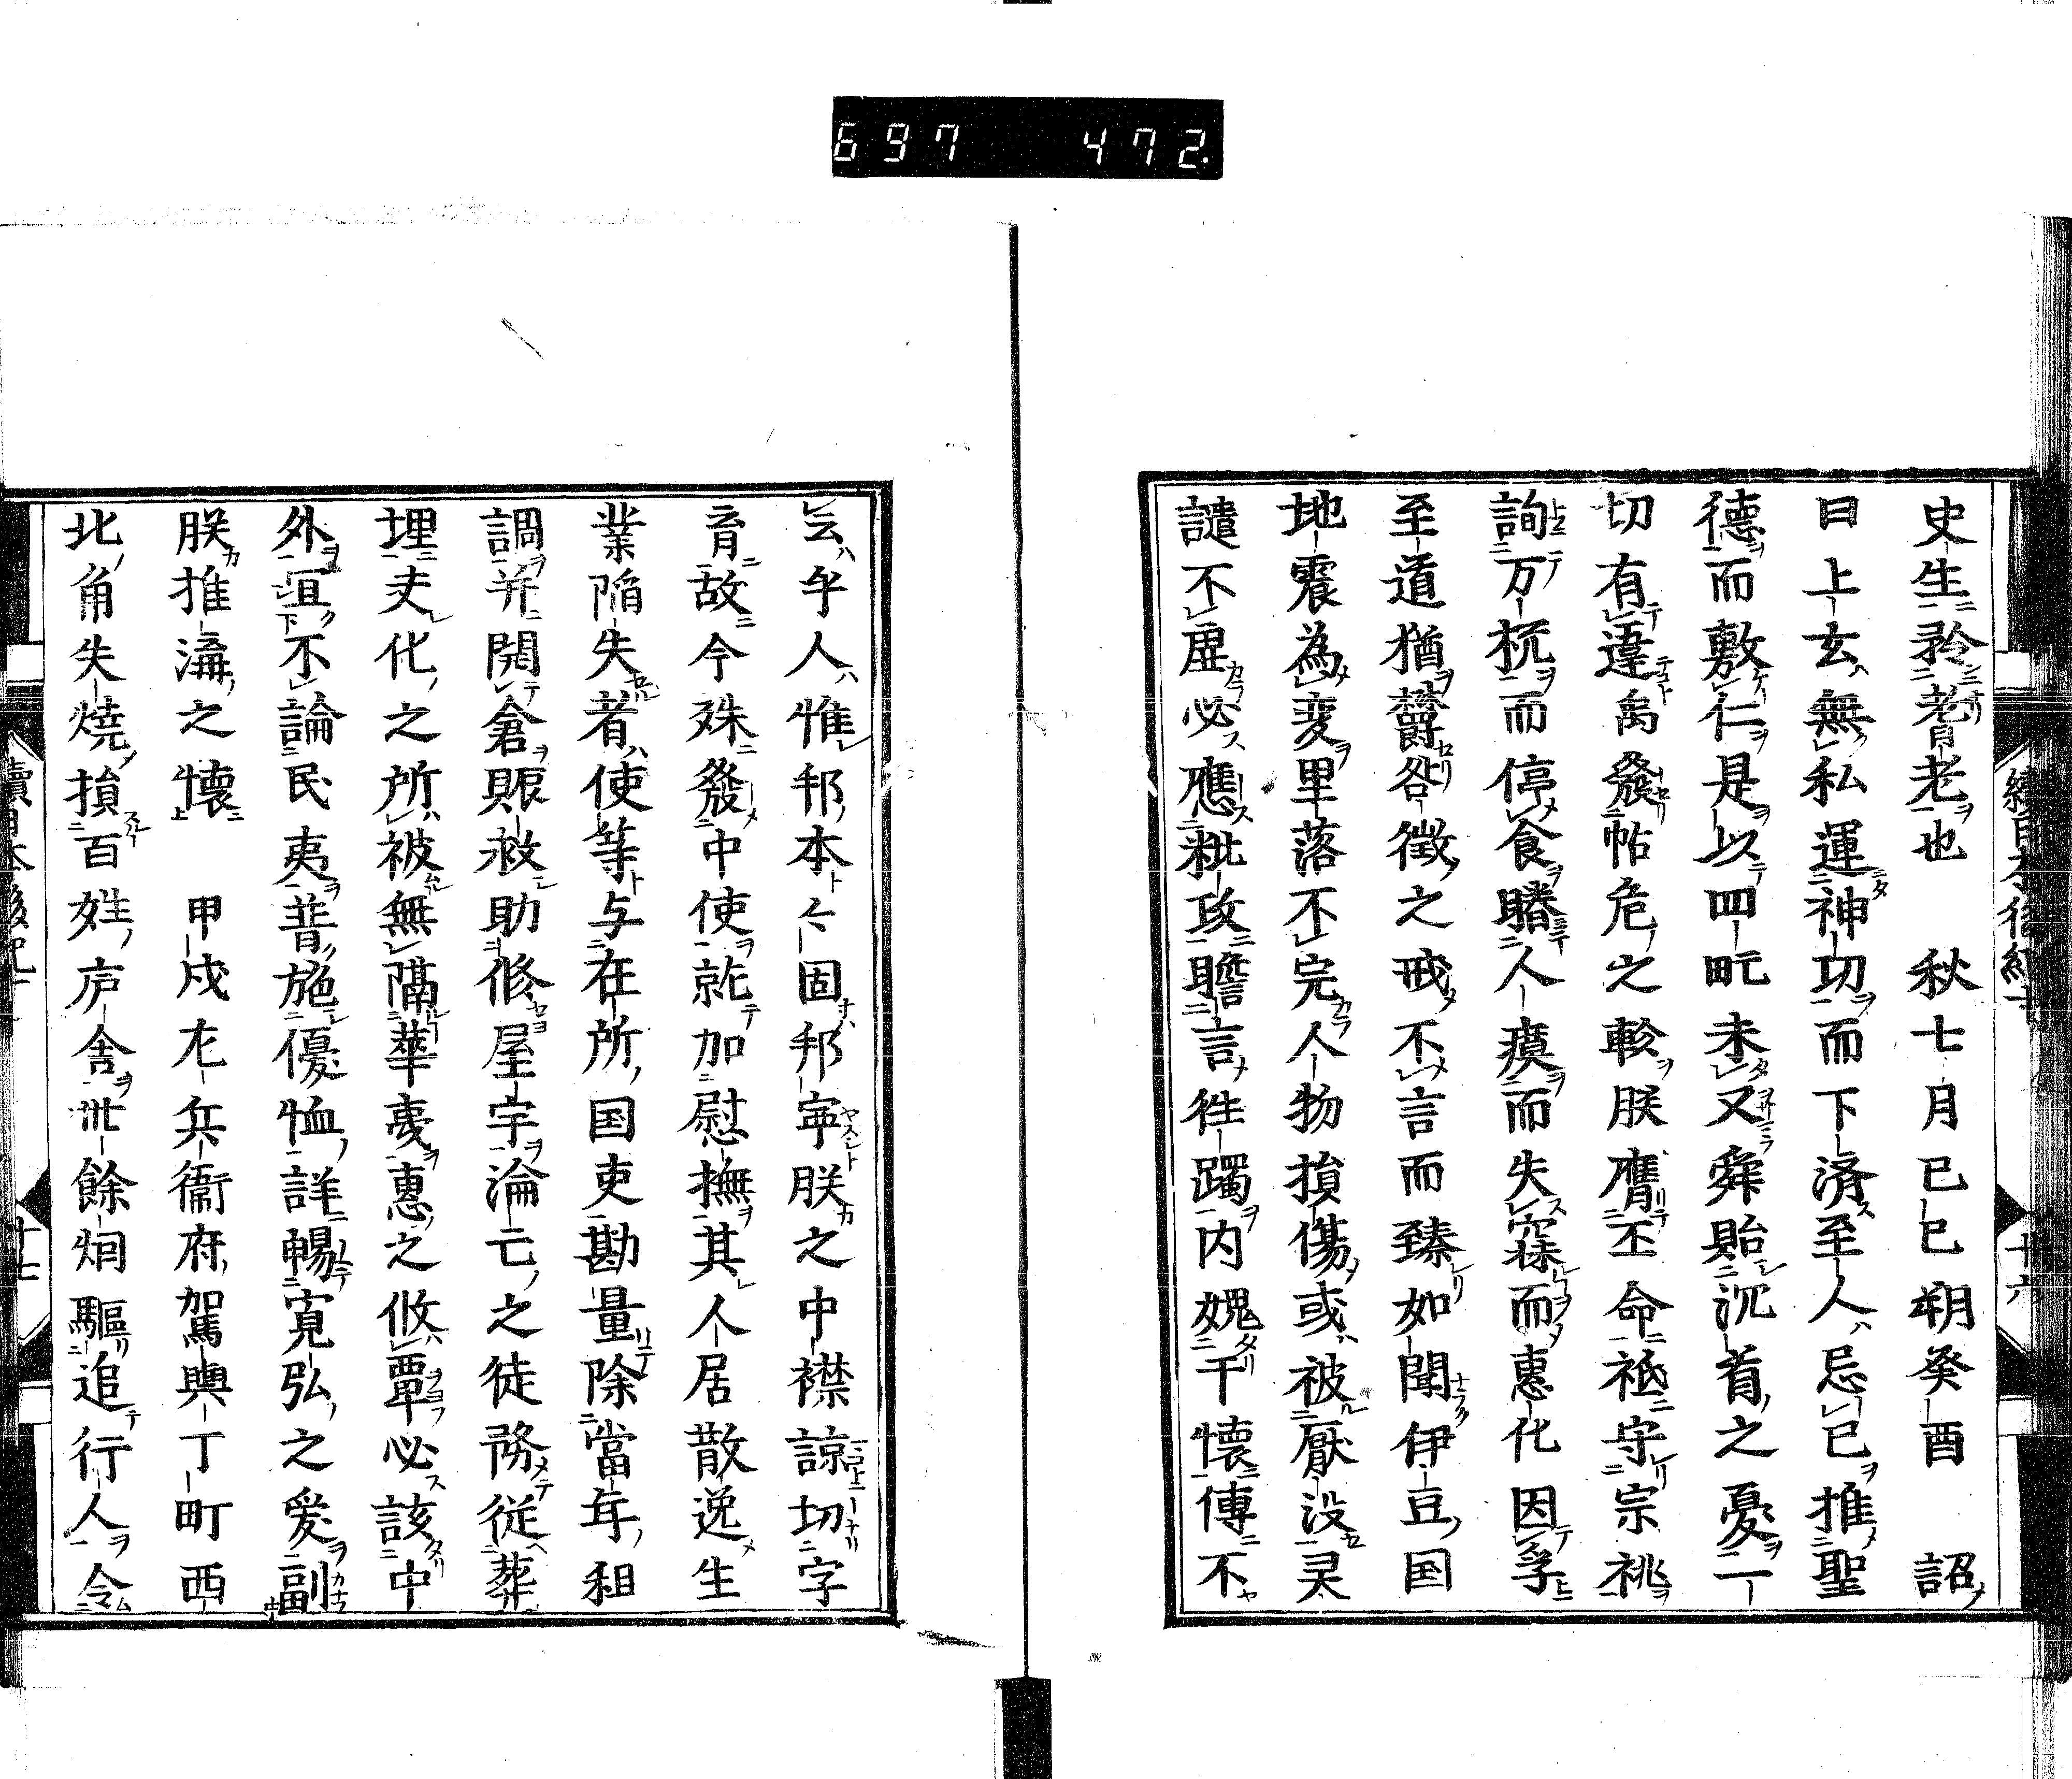 697 472.
史生矜耆老也 秋七月已巳朔癸酉 詔
曰上玄無私運神切而下済至人忌已推聖
德而敷仁是以四䀮未又舜貽沉首之憂一
切有違禹發帖危之軫朕膺丕命祗守宗祧
詢万杬而停食瞻人瘼而失寐而惠化因孚
至道猶欝咎徴之戒不言而臻如聞伊豆国
地震為変里落不完人物損傷或被厭没灵
譴不虛必應粃政瞻言徃躅内媿于懷傳不
云乎人惟邦本々固邦寧朕之中襟諒切字
育故今殊發中使就加慰撫其人居散逸生
業陥失者使等与在所国吏勘量除當年租
調并開倉賑救助修屋宇淪亡之徒務従葬
埋夫化之所被無隔華夷惠之攸覃必該中
外宜不論民夷普施優恤詳暢寛弘之爰副
朕推溝之懷 甲戌左兵衞府駕輿丁町西
北角失燒損百姓庐舎卅餘烟驅追行人令
續日本後紀十 十六
續日本後紀十 十七